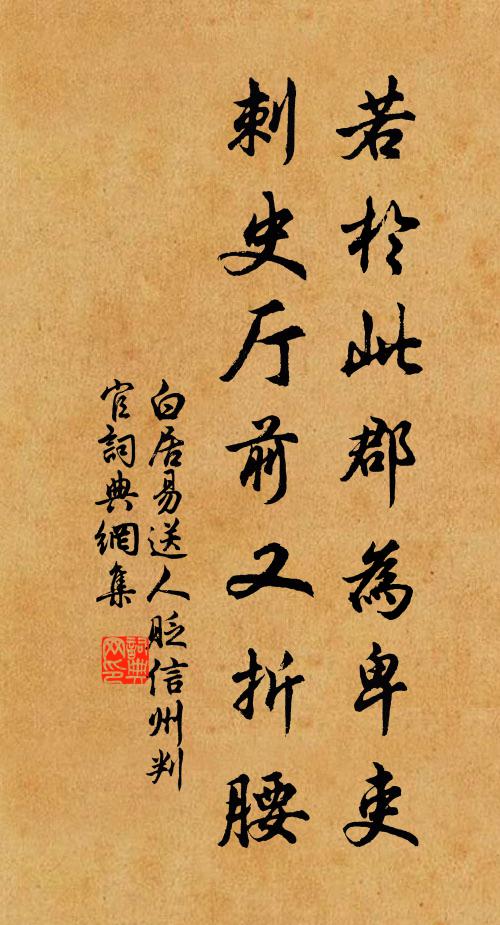 若於此郡為卑吏
刺史厅前又折腰
白居易送人貶信州判
官詞典網集
詞典
网印